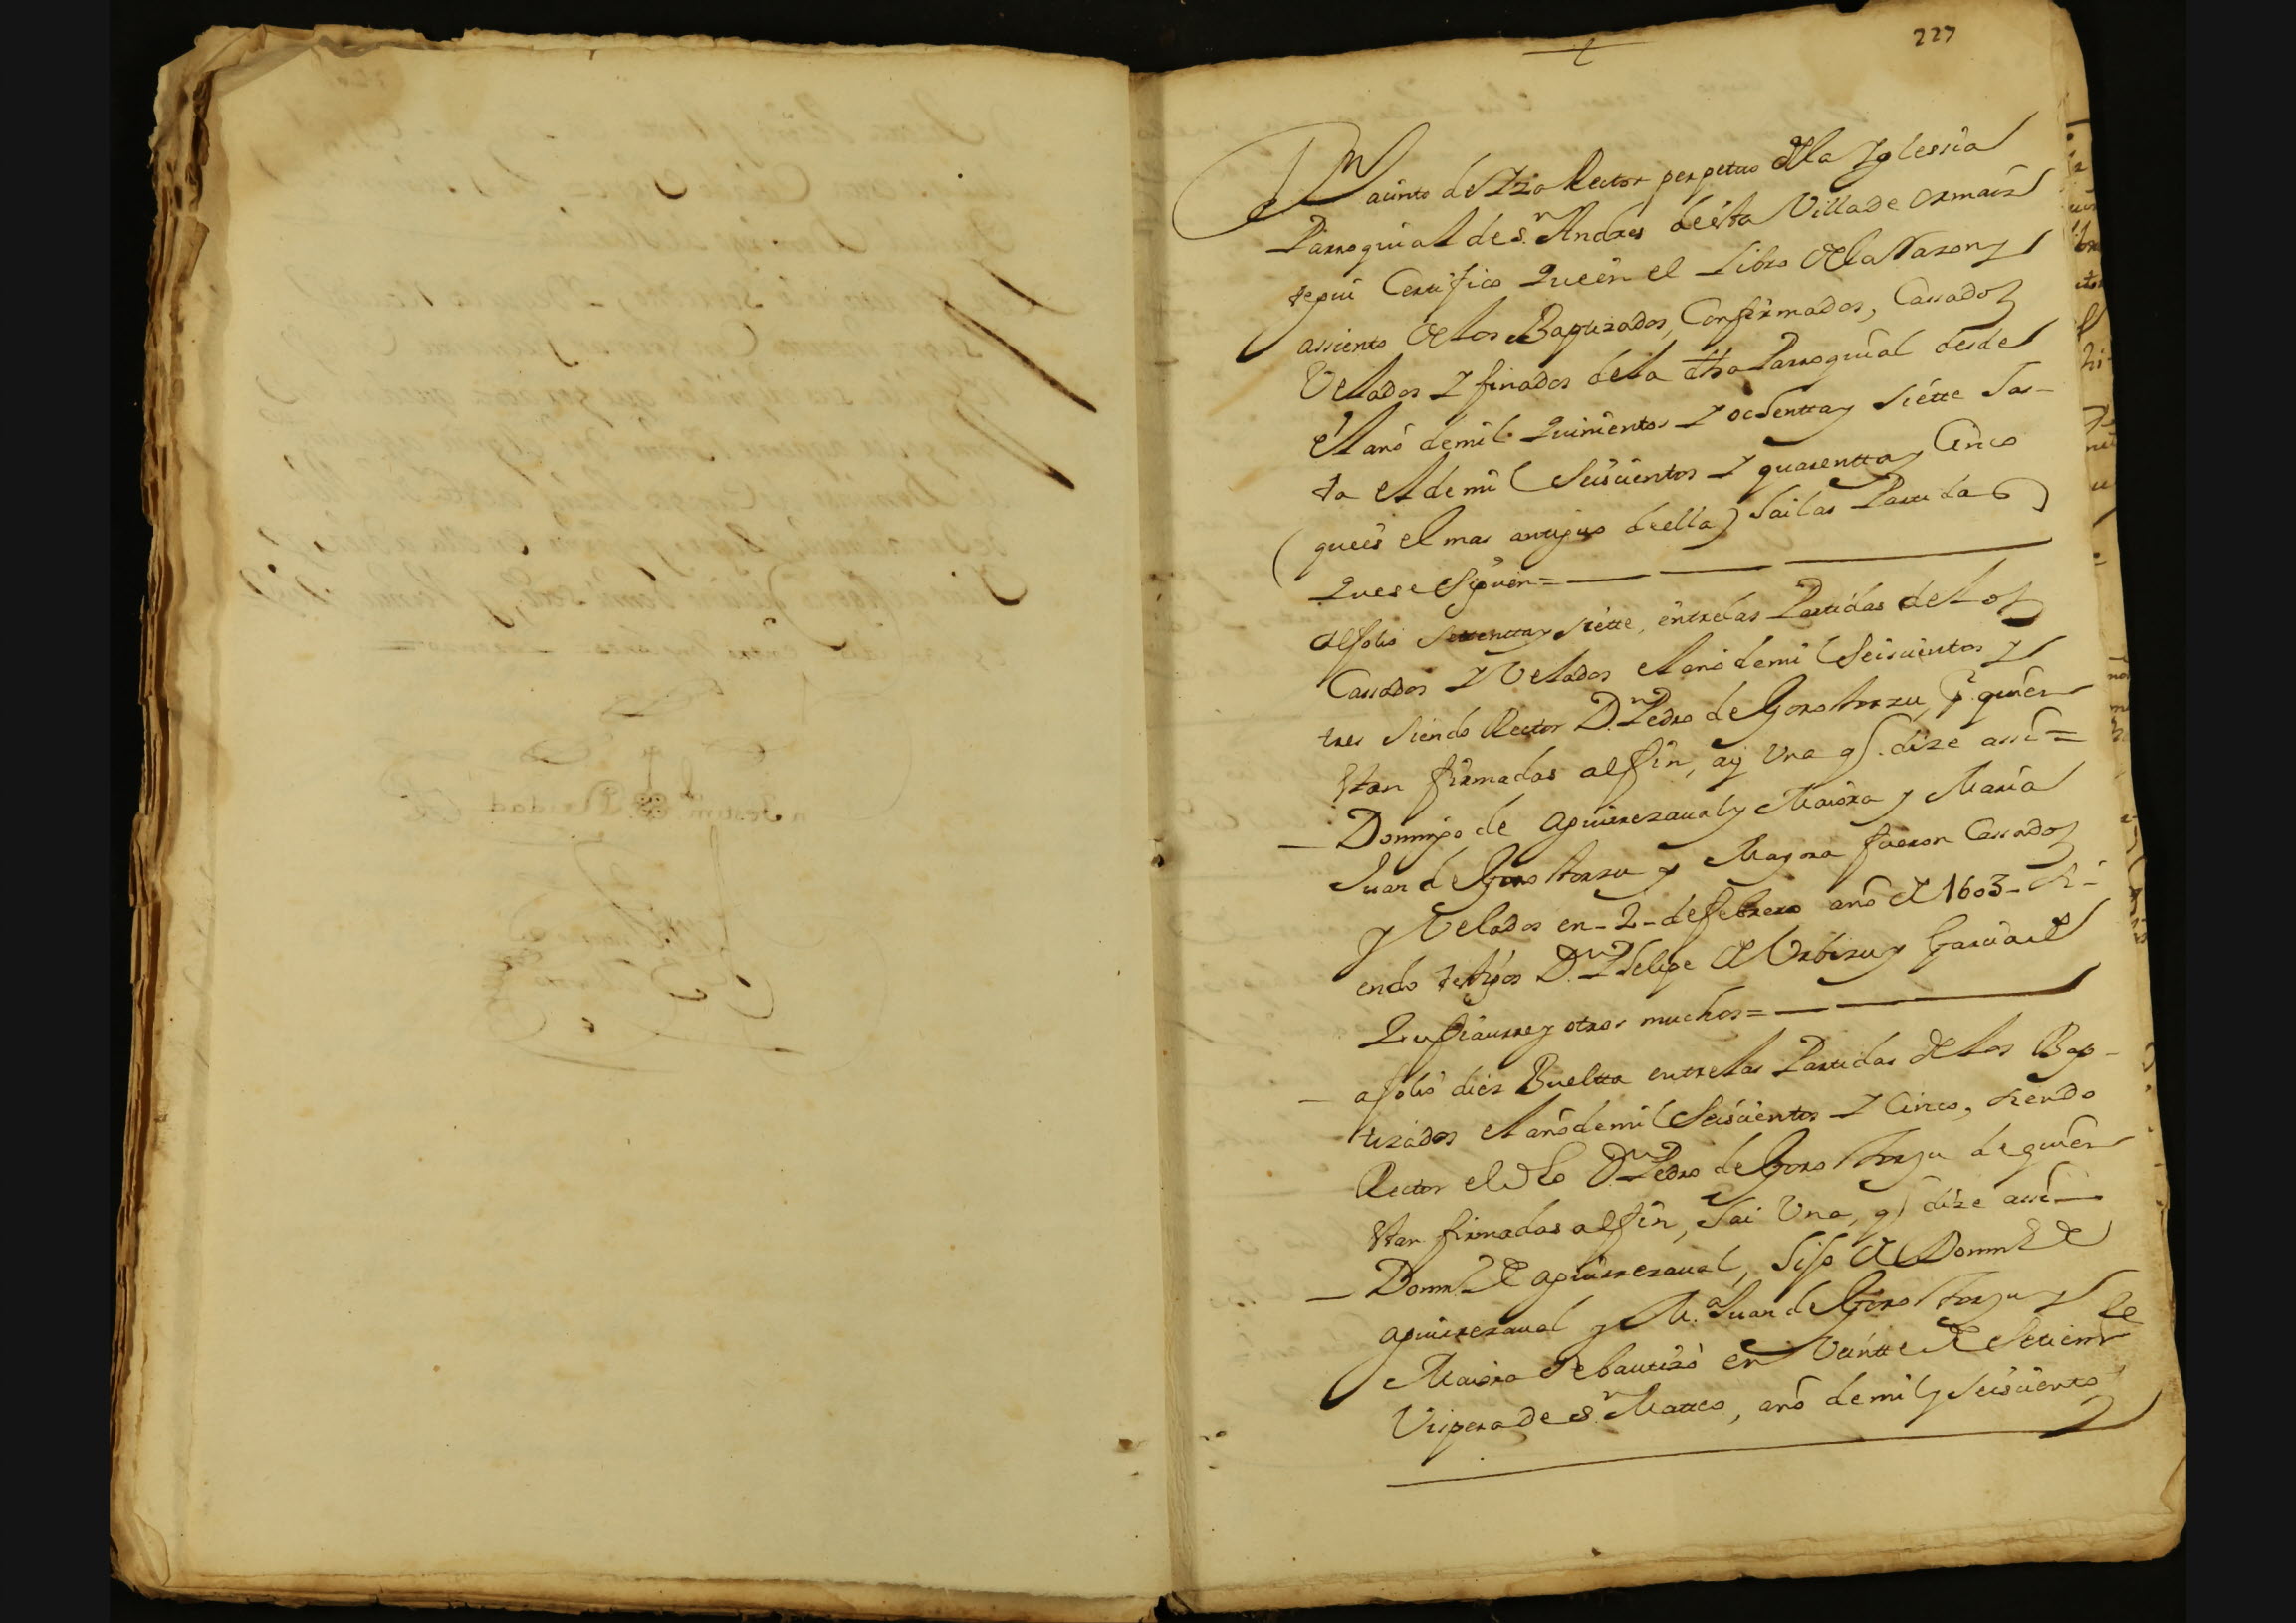 227
Dn Jacinto de Izo Rector perpetuo de la Yglessia
Parroquial de Sn. Andres de esta Villa de Ormaiz
tegui Certifico Que en el Libro de la Razon y
assiento de los Baptizados, Confirmados, Cassados
Velados Y finados de la dha Parroquial desde
el año de mil Quinientos Y ochentta y siette has-
ta el de mil Seiscientos Y quarentta y Cinco
(que es el mas antiguo de ella) hai las Partidas
Que se Siguen =
Al folio Settentta y siette, entre las Partidas de los
Cassados Y Velados el año de mil Seiscientos y
tres siendo Rector Dn. Pedro de Gorostorzu, pr. quien
stan firmadas al fin, ay Una q. dize assi =
Domingo de aguirrezaual y Maiora y Maria
Juan de Gorostorzu y Mayora fueron Cassados
y Velados en - 2 - de febrero año de 1603 - Si-
endo testigos Dn. Phelipe de Urbizu y Garcia de
Qufiaurre y otros muchos =
a folio diez Buelta entre las Partidas de los Bap-
tizados el año de mil Seiscientos Y Cinco, siendo
Rector el dho Dn. Pedro de Gorostorzu de quien
stan firmadas al fin, hai Una, q dize assi
Domin. de aguirrezaual, hijo de Domin. de
aguirrezaual y Ma. Juan de Gorostorzu y
Maiora se bautizó en Veintte de Setiembre
Vispera de Sn. Matteo, año de mil y seiscientos